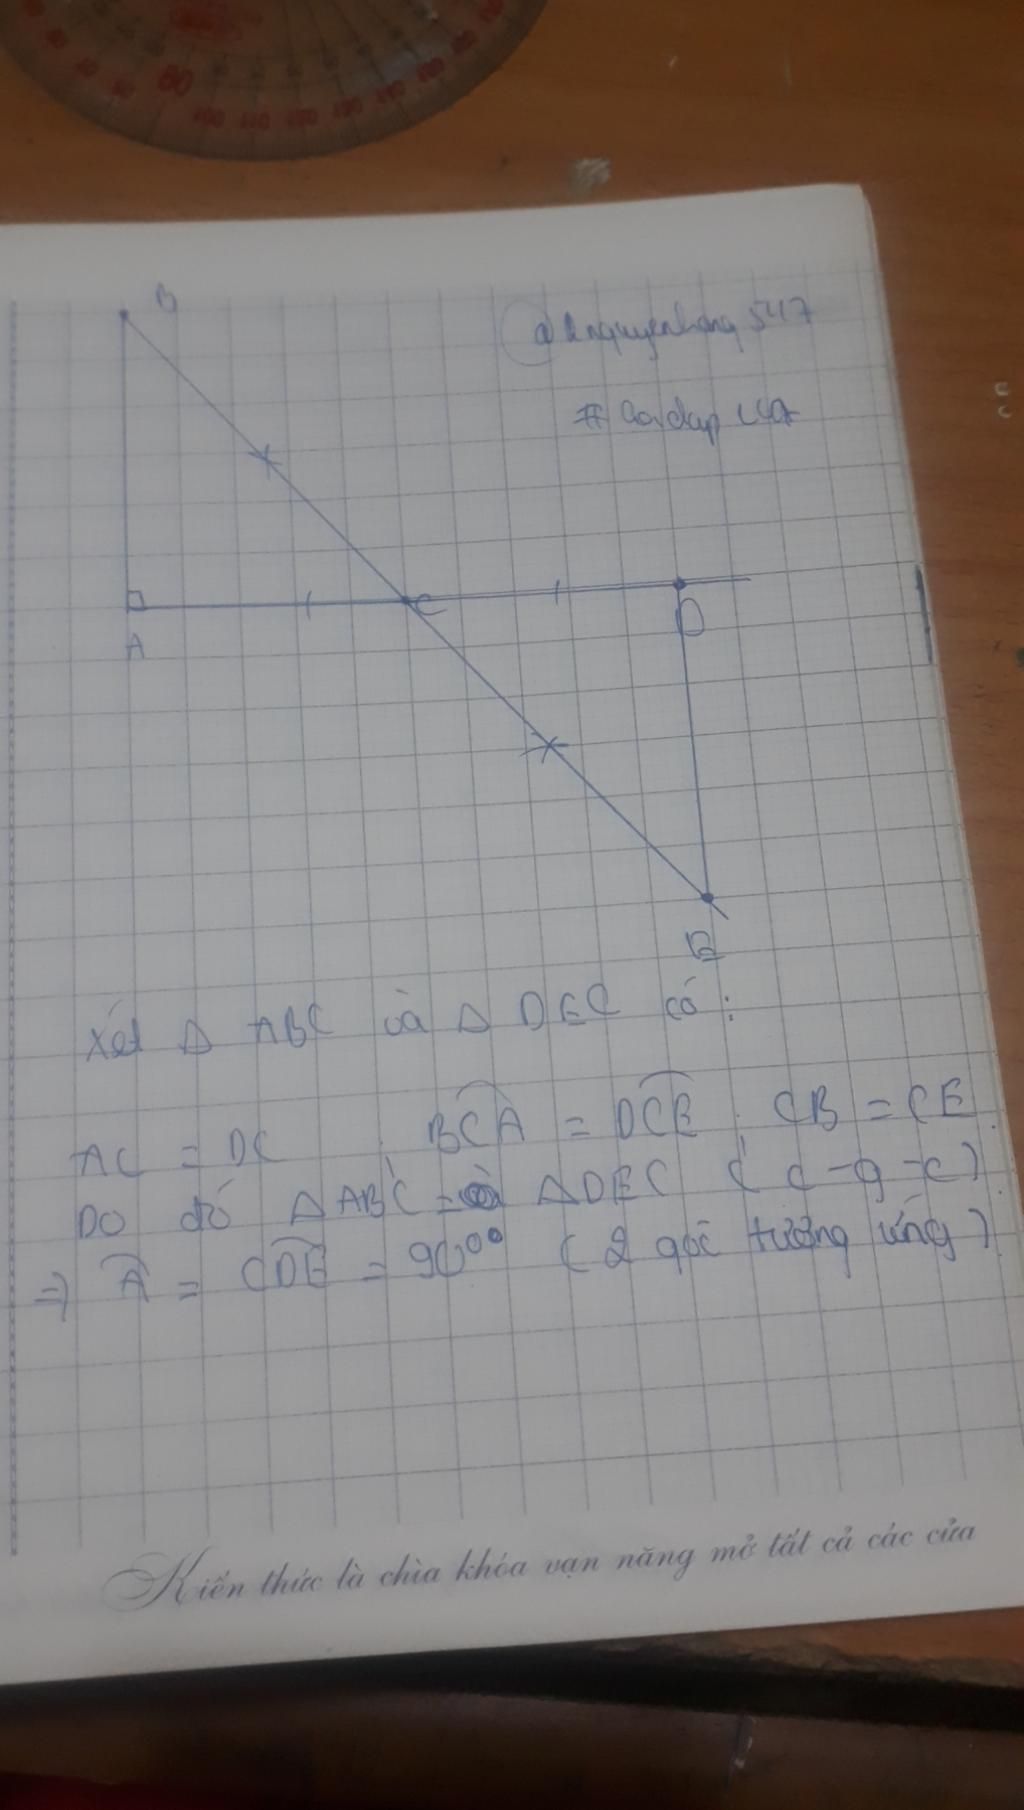 B
547
#
A
C
D
E
Xét Δ ABC và Δ DEC có:
AC = DC, BCA = DCE, CB = CE.
Do đó ΔABC = ΔDEC (c-g-c)
=> A = CDE = 90° (2 góc tương ứng)
Kiến thức là chìa khóa vạn năng mở tất cả các cửa